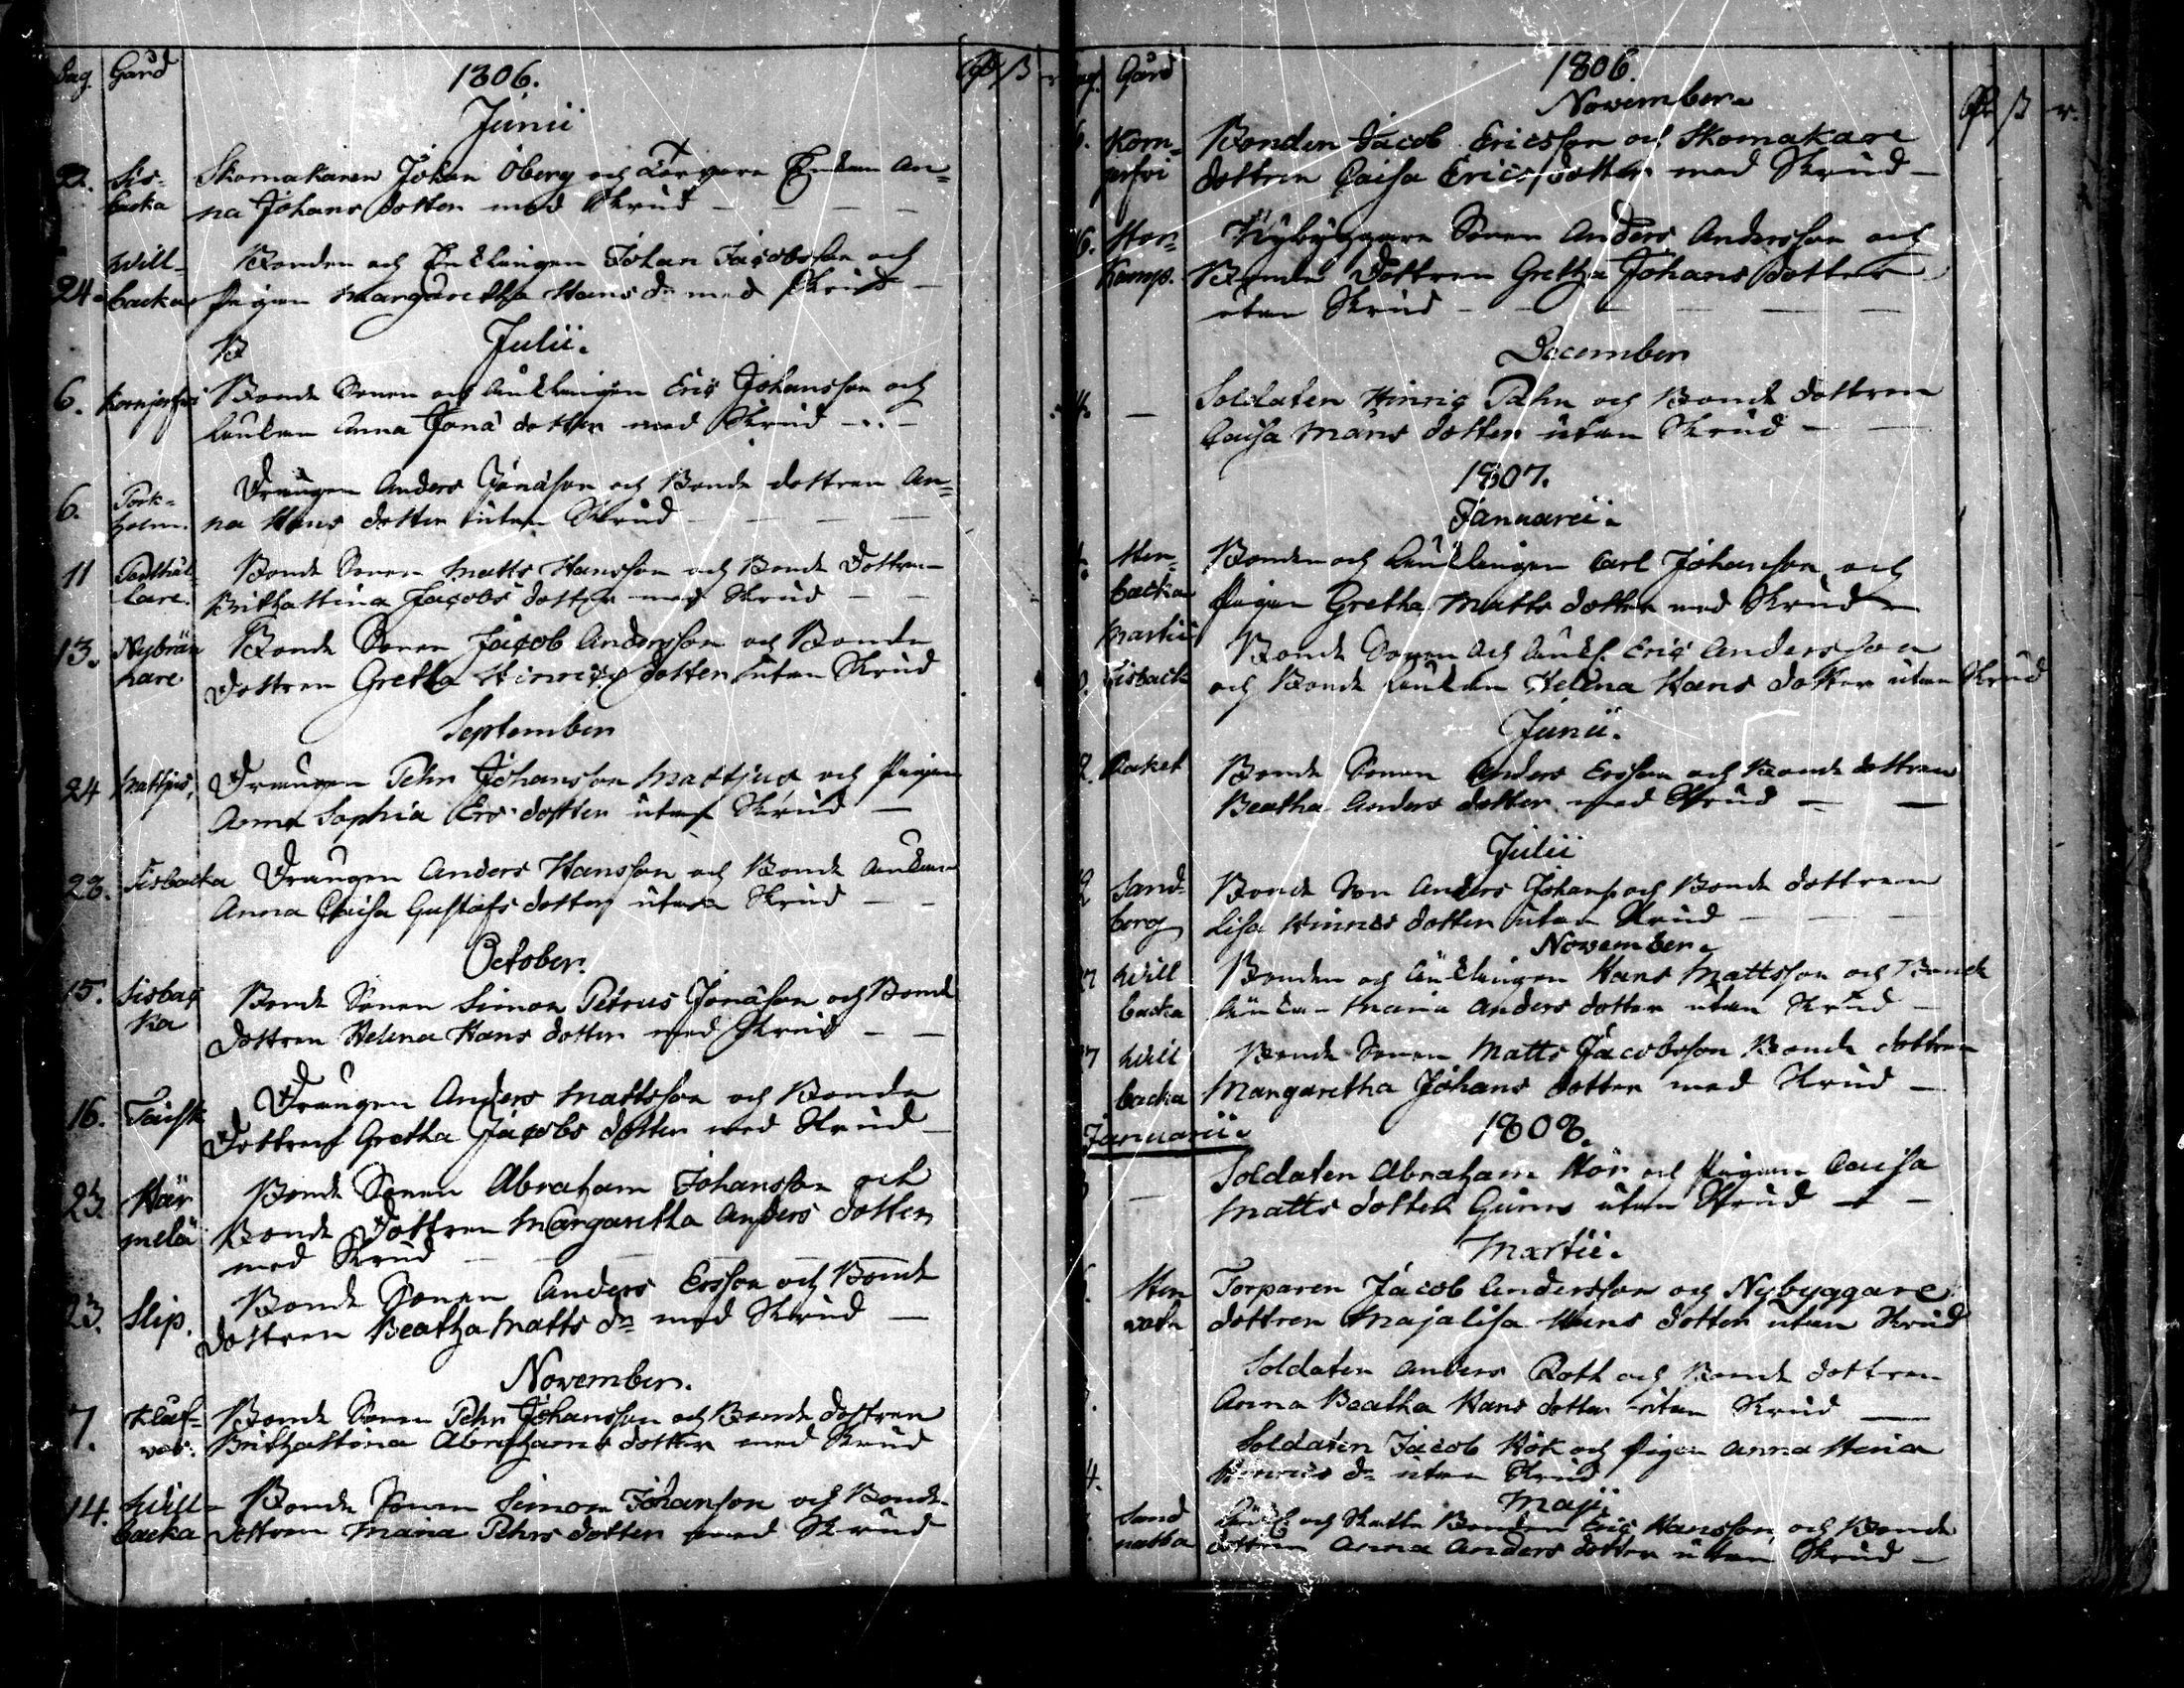 Dag. Gård 1806. Rd ß r
Junii
22. Sis- Skomakaren Johan Öberg och Torpare Enkan An-
backa na Johans dotter med Skrud
Will- Bonden och Enklingen Johan Jacobsson och
24. backa Pigan Margaretha Hans dr med Skrud
B Julii.
6. Kornjerfvi Bonde Sonen och Änklingen Eric Johansson och
Änkan Anna Jona dotter med Skrud
Drängen Anders Jonasson och Bonde dottren An-
6. Pork-
holm. na Hans dotter utan Skrud
11 Penthäl- Bonde Sonen Matts Hansson och Bonde Dottren
lare. Britha Stina Jacobs dotter med Skrud
13. Nybrän Bonde Sonen Jacob Andersson och Bonde
nare Dottren Gretha Hinrics dotter utan Skrud
September
24 Mattjus, Drängen Pehr Johansson Mattjus och Pigan
Anna Sophia Ers dotter utan Skrud
28. Sisbacka Drängen Anders Hansson och Bonde Änkan
Anna Caisa Gustafs dotter utan Skrud
October.
15. Sisbac Bonde Sonen Simon Petrus Jonasson och Bonde
ka Dottren Helena Hans dotter med Skrud
16. Taisk Drängen Anders Mattsson och Bonde
Dottren Gretha Jacobs dotter med Skrud
23. Här Bonde Sonen Abraham Johansson och
melä Bonde Dottren Margaretha Anders dotter
med Skrud
23. Slip. Bonde Sonen Anders Ersson och Bonde
Dottren Beatha Matts dr med Skrud
November.
7. Kluf- Bonde Sonen Pehr Johansson och Bonde dottren
Britha Stina Abrahams dotter med Skrud
14. Will- Bonde Sonen Simon Johansson och Bonde
backa Dottren Maria Pehrs dotter med Skrud
Gård 1806. Rd ß r.
November
6. Korn- Bonden Jacob Ericsson och Skomakare
jerfvi dottren Caisa Erics dotter med Skrud
16. Stor- Nybyggare Sonen Anders Andersson och
kamp. Bonde Dottren Gretha Johans dotter
utan Skrud
December
Soldaten Hinric Palm och Bonde dottren
Caisa Måns dotter utan Skrud
1807.
Januarii.
Sten- Bonden och Änklingen Carl Johansson och
backa Pigan Gretha Matts dotter med Skrud
Martii Bonde Sonen och Änkl. Eric Andersson
Sisbacka och Bonde Änkan Helena Hans dotter utan Skrud
Junii.
Raket Bonde Sonen Anders Ersson och Bonde dottren
Beatha Anders dotter med Skrud
Julii
Sand- Bonde Son Anders Johanss. och Bonde dottren
berg Lisa Hinrics dotter utan Skrud
November.
27 Will Bonden och Änklingen Hans Mattsson och Bonde
backa Änkan Maria Anders dotter utan Skrud
27 Will Bonde Sonen Matts Jacobsson Bonde dottren
backa Margaretha Johans dotter med Skrud
Januarii. 1808.
Soldaten Abraham Hör och Pigan Caisa
Matts dotter Gunns utan Skrud
Martii.
Sten Torparen Jacob Andersson och Nybyggare
vatn dottren Maja Lisa Hans dotter utan Skrud
Soldaten Anders Roth och Bonde dottren
Anna Beatha Hans dotter utan Skrud
Soldaten Jacob Hök och Pigan Anna Stina
4. Hinrics dr utan Skrud
Maji
Sand Änkl. och Skatte Bonden Eric Hansson och Bonde
nabba dottren Anna Anders dotter utan Skrud